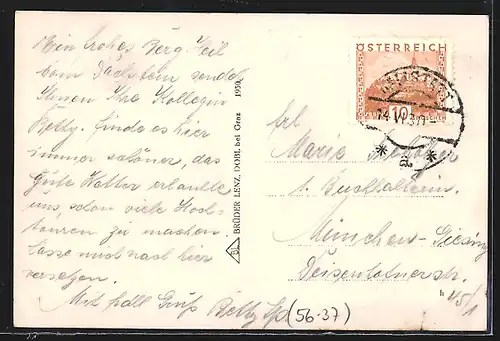 Ein frohes Berg Heil
vom Dachstein sendet
Ihnen Ihre Kollegin
Betty. Finde es hier
immer schöner, das
gute Wetter erlaubte
uns, schon viele Hoch-
touren zu machen.
Lasse mich nach hier
versetzen.
Mit Gruß Betty
(56-37)
BRÜDER LENZ, DOBL bei Graz 1950.
ÖSTERREICH
10
GROSCHEN
HALLSTATT
14.VI.31
* 2 *
Frl
Marie
Buchhalterin.
München-Giesing
45/1